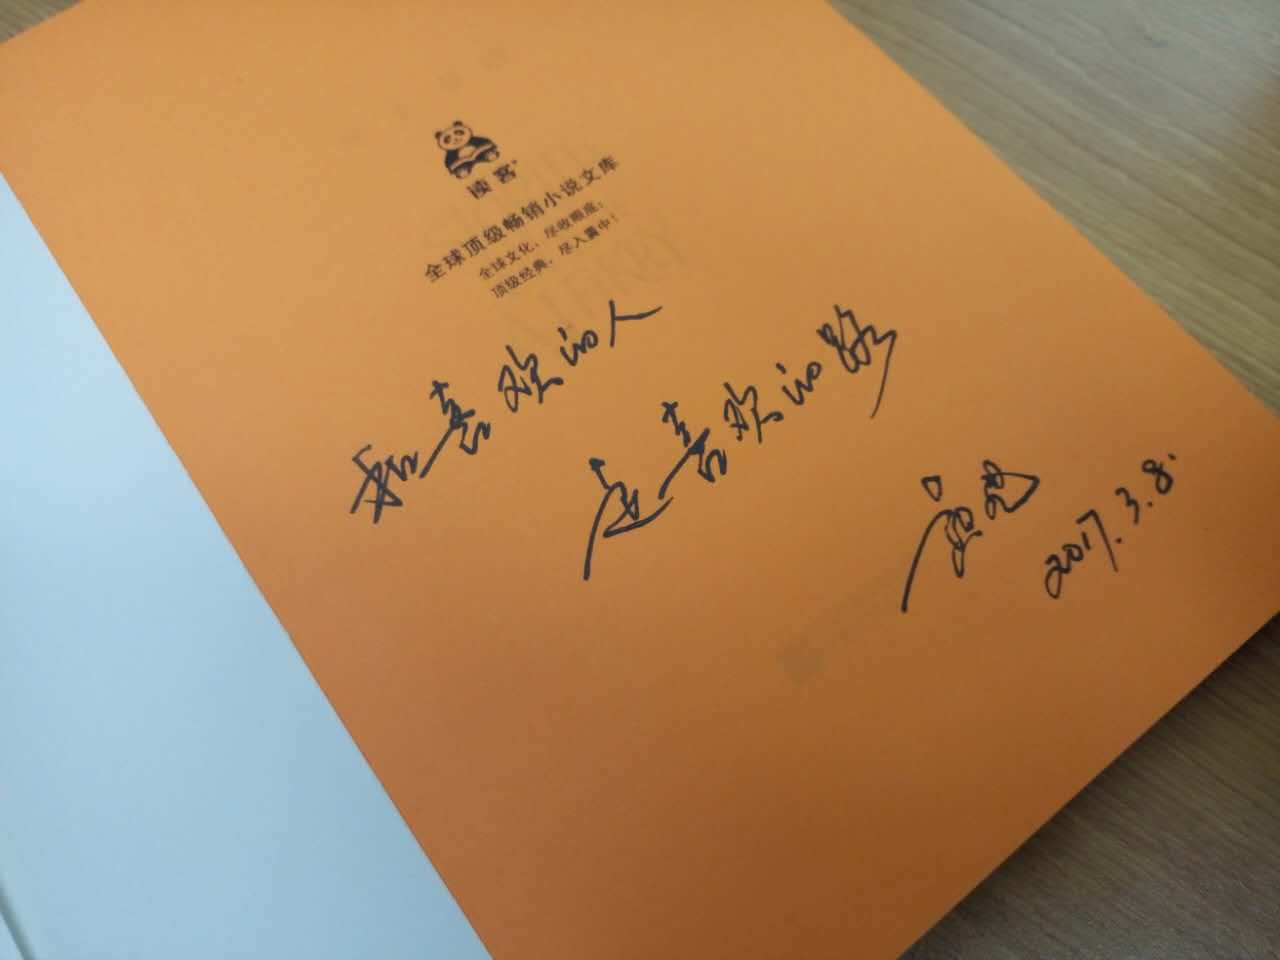 读客
全球顶级畅销小说文库
全球文化，尽收眼底；
顶级经典，尽入囊中！
和喜欢的人
走喜欢的路
2017.3.8.